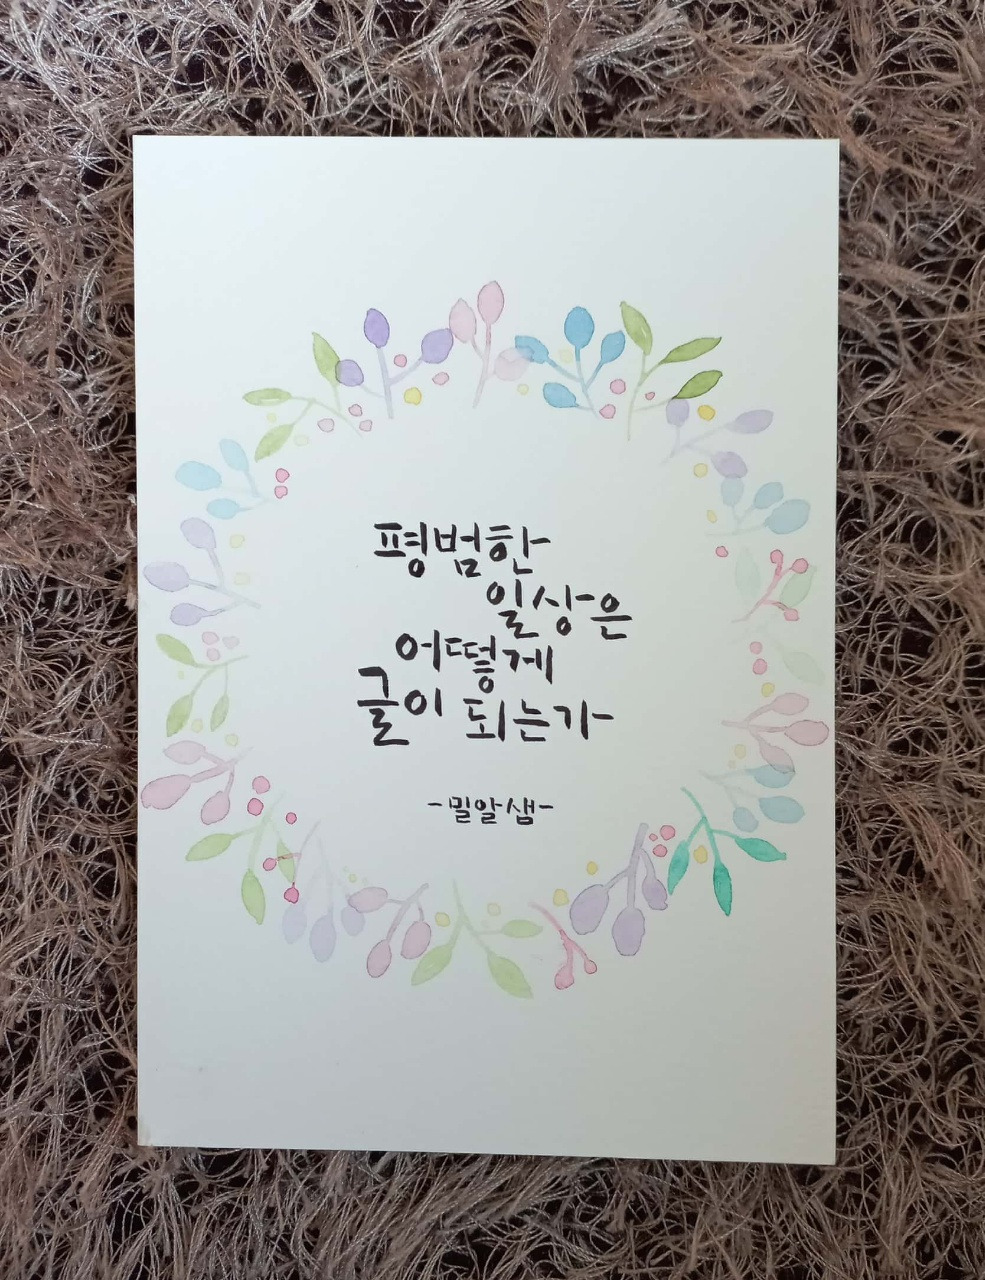 평범한
일상은
어떻게
글이 되는가
-밀알샘-